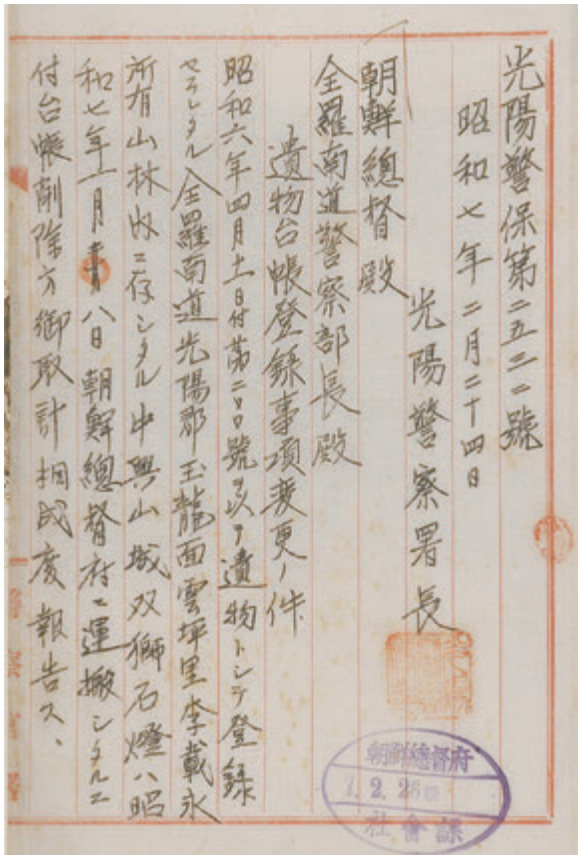 光陽警保第二五三二號
昭和七年二月二十四日
光陽警察署長
朝鮮總督殿
全羅南道警察部長殿
遺物台帳登録事項変更ノ件
昭和六年四月土日付第二〇〇號ヲ以テ遺物トシテ登録
セラレタル全羅南道光陽郡玉龍面雲坪里李載永
所有山林内ニ存シタル中興山城双獅石燈ハ昭
和七年一月八日朝鮮總督府ニ運搬シタルニ
付台帳削除方御取計相成度報告ス、
朝鮮總督府
7.2.26
社會課